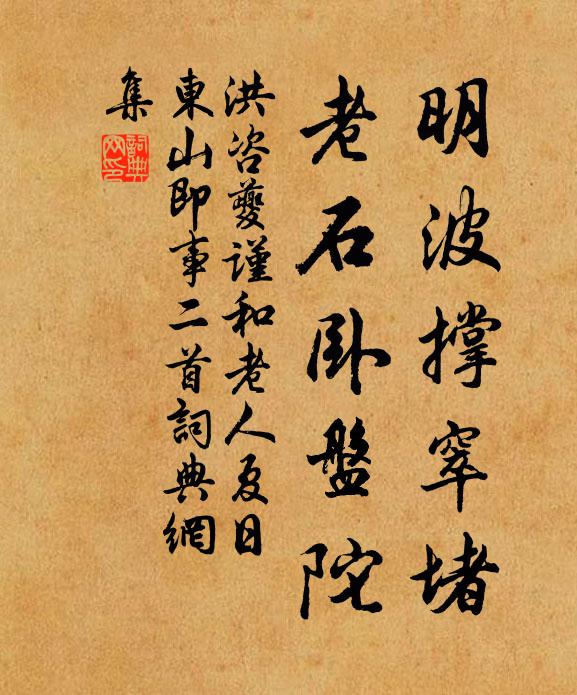 明波撐窣堵
老石卧盤陀
洪咨夔謹和老人夏日
東山即事二首詞典網
集
詞典網印